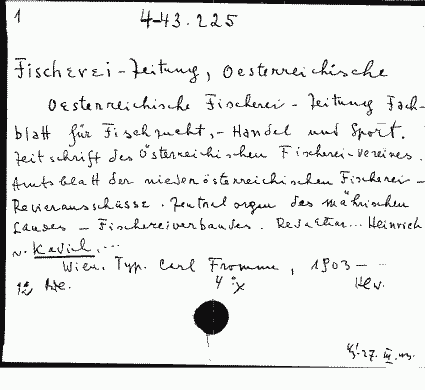 1
4-43.225
Fischerei-Zeitung, Oesterreichische
Oesterreichische Fischerei-Zeitung Fach-
blatt für Fischzucht,- Handel und Sport.
Zeitschrift des Österreichischen Fischerei-Vereines.
Amtsblatt der niederösterreichischen Fischerei-
Revierausschüsse. Zentralorgan des mährischen
Landes-Fischereiverbandes. Redakteur... Heinrich
v. Kadich,...
Wien, Typ. Carl Fromme, 1903-
4°x
27. III.